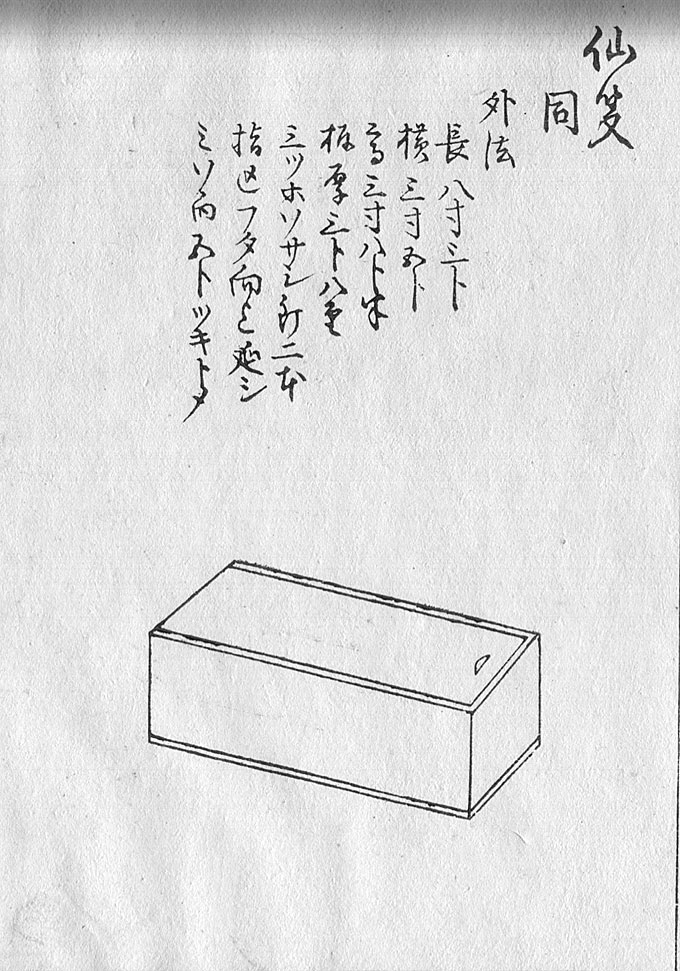 仙叟
同
外法
長 八寸三ト
横 三寸五ト
高 三寸八ト半
板厚三ト八毛
三ツホソサシ 釘二本
指込フタ向ミ延シ
ミソ向五トツキトメ